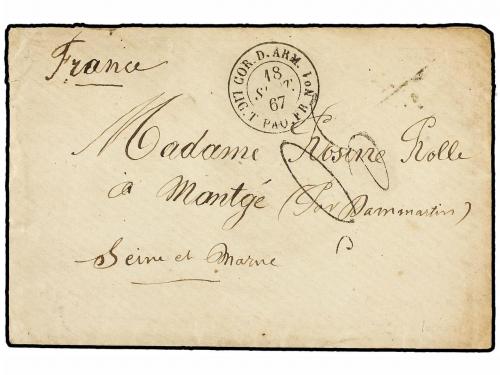 France
COR. D. ARM. LIG. T PAQ. FR. N°1
18
SEPT.
67
Madame Rosine Rolle
à Montgé (Par Dammartin)
Seine et Marne